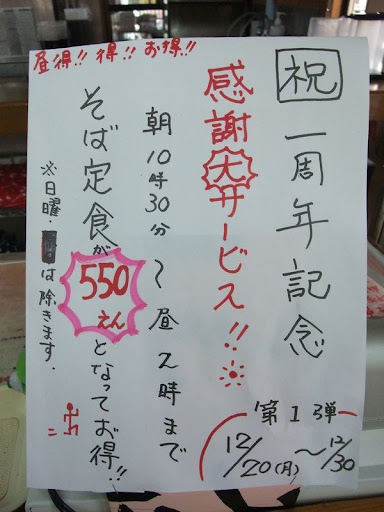 昼得!! 得!! お得!!
祝 一周年記念
感謝大サービス!!
朝10時30分〜昼2時まで
そば定食が550えんとなってお得!!
※日曜・は除きます.
第1弾
12/20(月)〜12/30